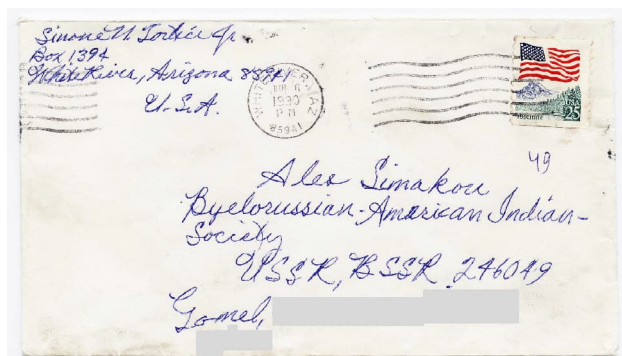 Simone N Tortice Jr
Box 1394
WhiteRiver, Arizona 85941
U.S.A.
WHITERIVER AZ
6
1990
PM
85941
Yosemite
USA
25
49
Ales Simakou
Byelorussian-American Indian-
Society
USSR, BSSR 246049
Gomel,